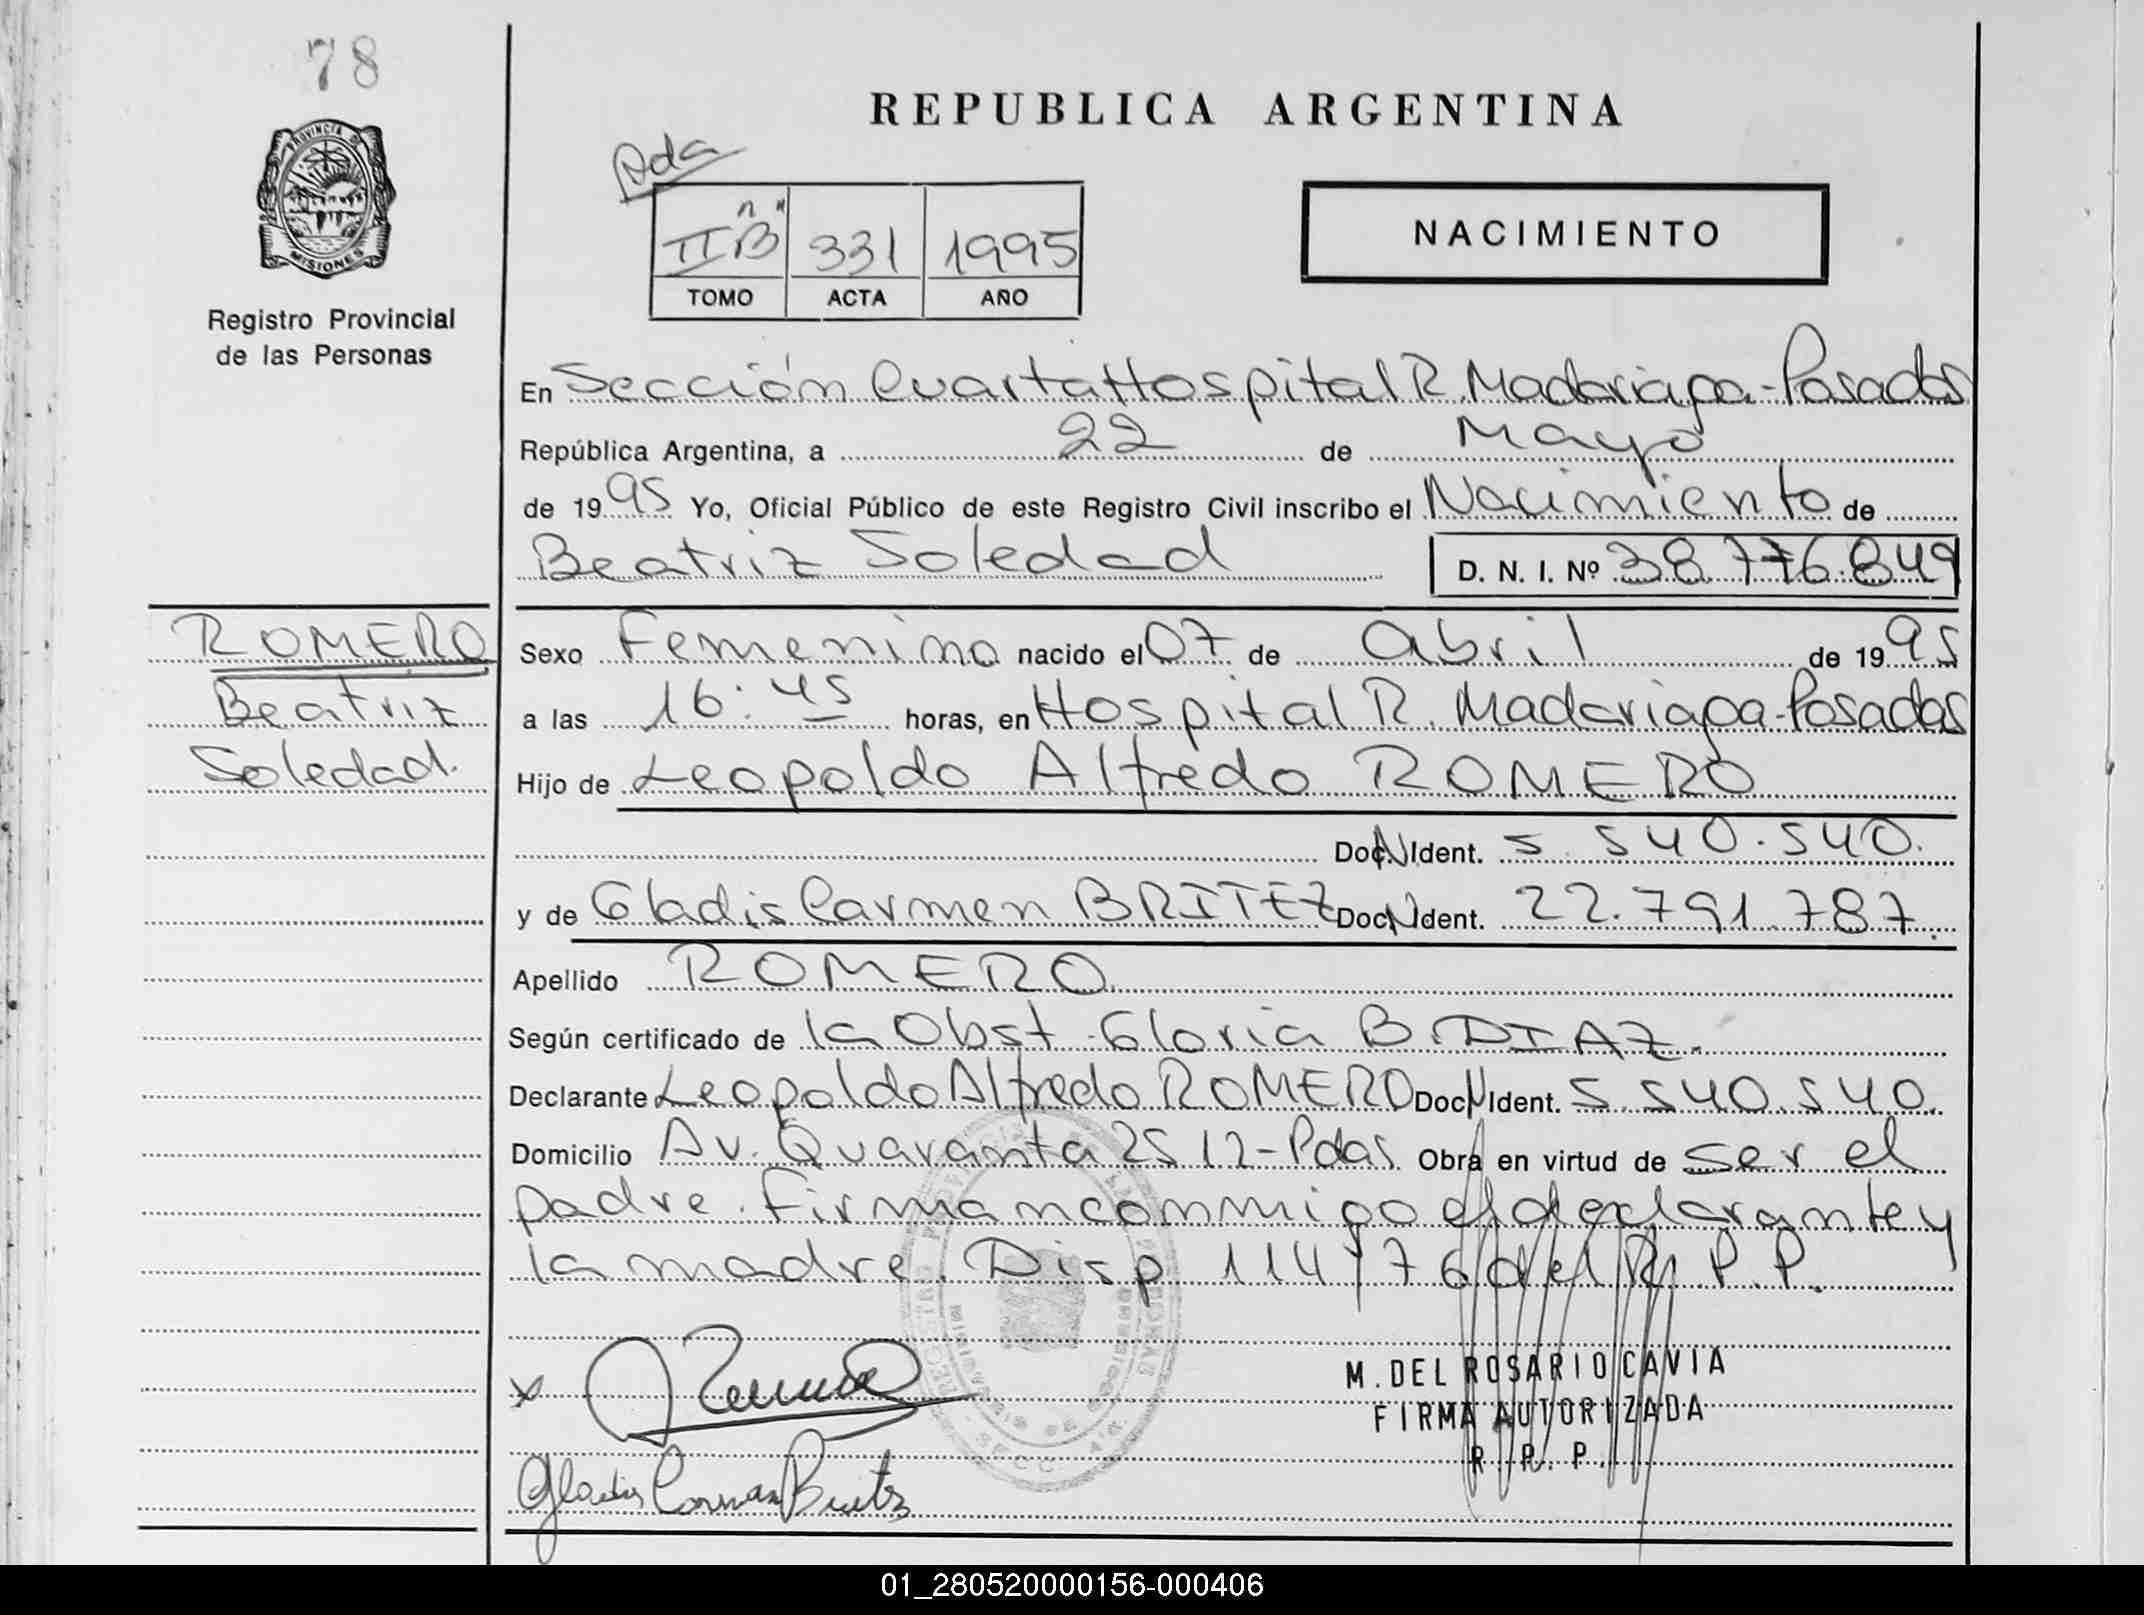 78
REPUBLICA ARGENTINA
Pda
PROVINCIA DE
MISIONES
Registro Provincial
de las Personas
II "B" 331 1995
TOMO ACTA AÑO
NACIMIENTO
En Sección Cuarta Hospital R. Madariaga - Posadas
República Argentina, a 22 de Mayo
de 1995 Yo, Oficial Público de este Registro Civil inscribo el Nacimiento de
Beatriz Soledad D. N. I. Nº 38.776.849
ROMERO
Beatriz
Soledad.
Sexo Femenino nacido el 07 de abril de 1995
a las 16:45 horas, en Hospital R. Madariaga - Posadas
Hijo de Leopoldo Alfredo ROMERO
Doc. N Ident. 5.540.540.
y de Gladis Carmen BRITEZ Doc. N Ident. 22.791.787.
Apellido ROMERO
Según certificado de la Obst. Gloria B. DIAZ.
Declarante Leopoldo Alfredo ROMERO Doc. N Ident. 5.540.540.
Domicilio Av. Quaranta 2512 - Pdas. Obra en virtud de ser el
padre. Firman conmigo el declarante y
la madre. Disp. 114/76 del R. P. P.
M. DEL ROSARIO CAVIA
FIRMA AUTORIZADA
R. R. P.
Gladis Carman Britez
01_280520000156-000406